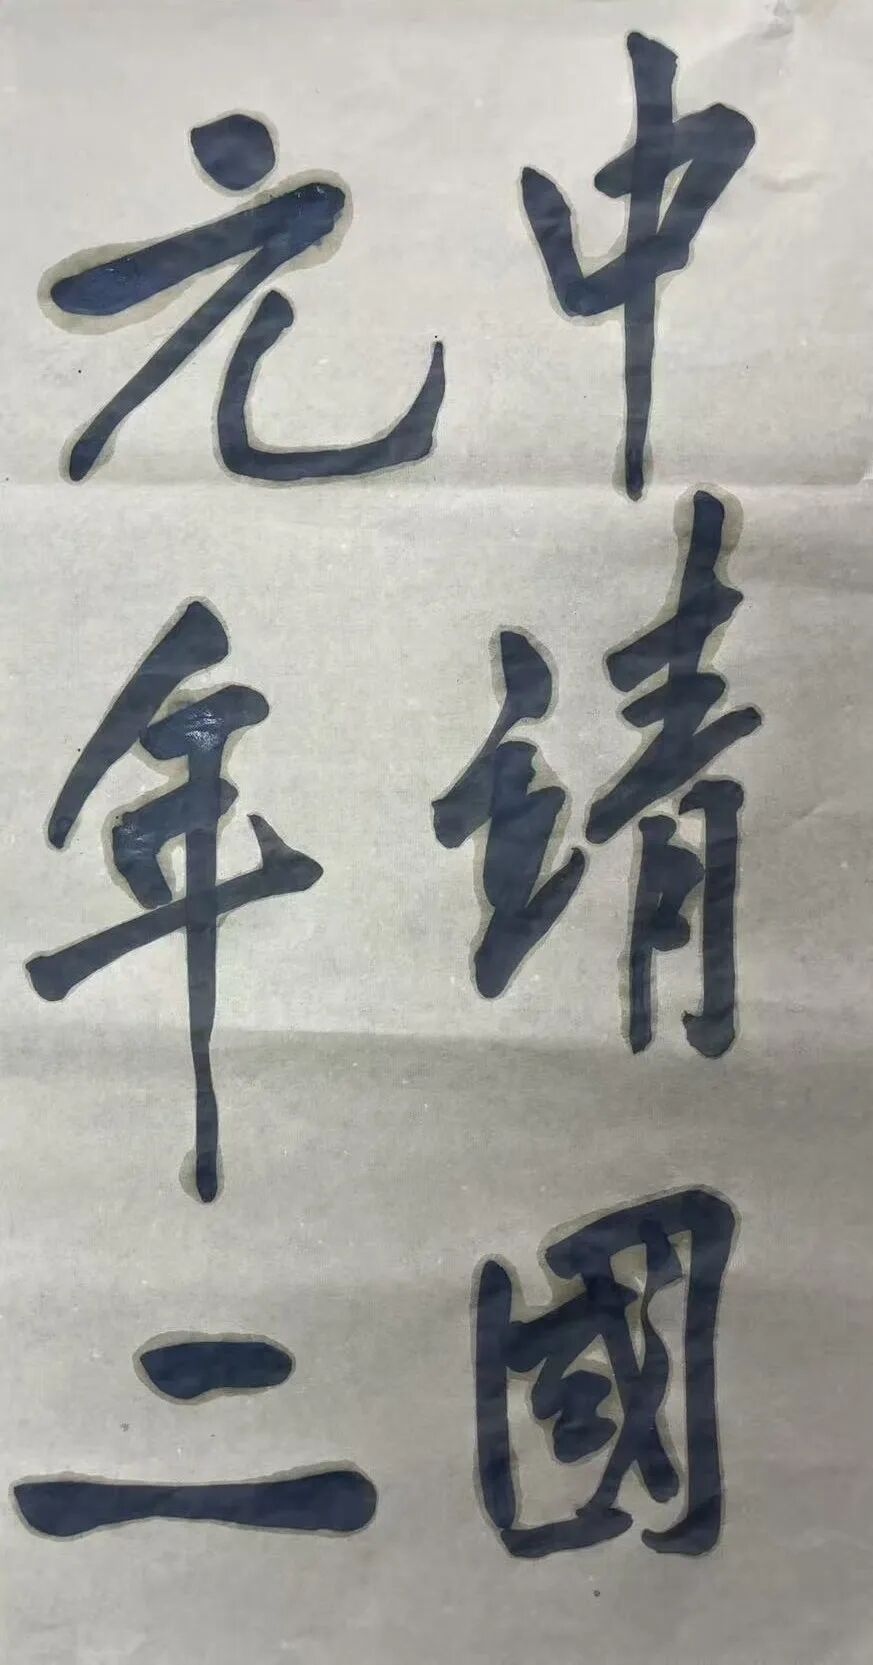 中靖國
元年二